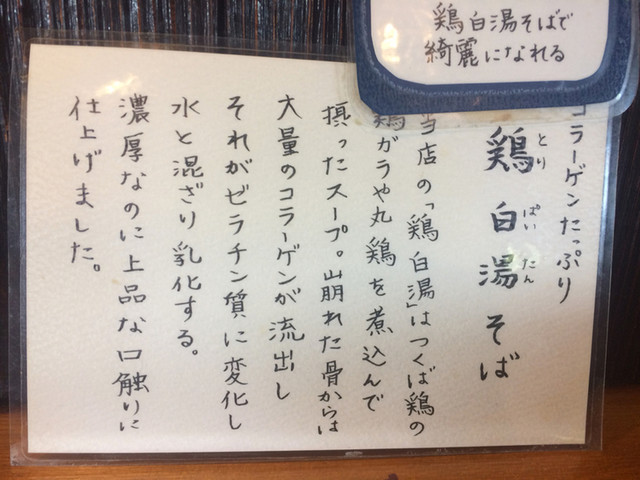 鶏白湯そばで
綺麗になれる
コラーゲンたっぷり
鶏白湯そば
とり ぱい たん
当店の「鶏白湯」はつくば鶏の
鶏ガラや丸鶏を煮込んで
摂ったスープ。崩れた骨からは
大量のコラーゲンが流出し
それがゼラチン質に変化し
水と混ざり乳化する。
濃厚なのに上品な口触りに
仕上げました。